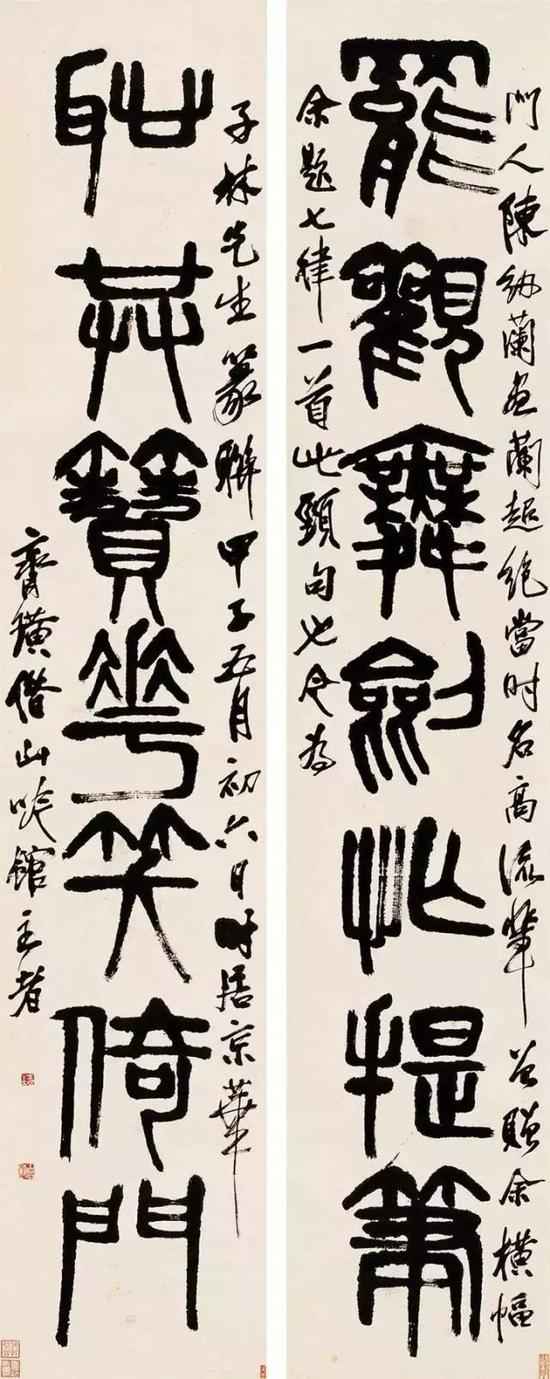 門人陳紉蘭畫蘭超絕當時名高流輩贈余橫幅
罷觀舞劍忙提筆
余題七律一首此頸句也今為
子林先生篆聯甲子五月初六日時居京華
耻共簪花笑倚門
齊璜借山吟館主者